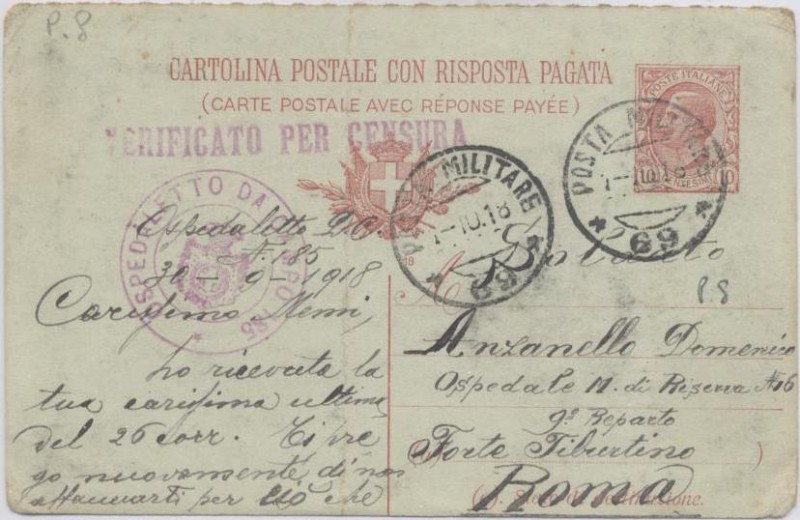 P. 8
CARTOLINA POSTALE CON RISPOSTA PAGATA
(CARTE POSTALE AVEC RÉPONSE PAYÉE)
POSTE ITALIANE
10
VERIFICATO PER CENSURA
POSTA MILITARE
1-10.18
* 69 *
POSTA MILITARE
10.18
* 69 *
OSPEDALETTO DA CAMPO 185
Ospedaletto D.C
N. 185
30-9-1918
Carissimo Memi,
ho ricevuta la
tua carissima ultima
del 26 corr. Ti pre
go nuovamente di non
affannarti per ciò che
A Soldato
P 8
Anzanello Domenico
Ospedale M. di Riserva N 16
9° Reparto
Forte Tiburtino
Roma